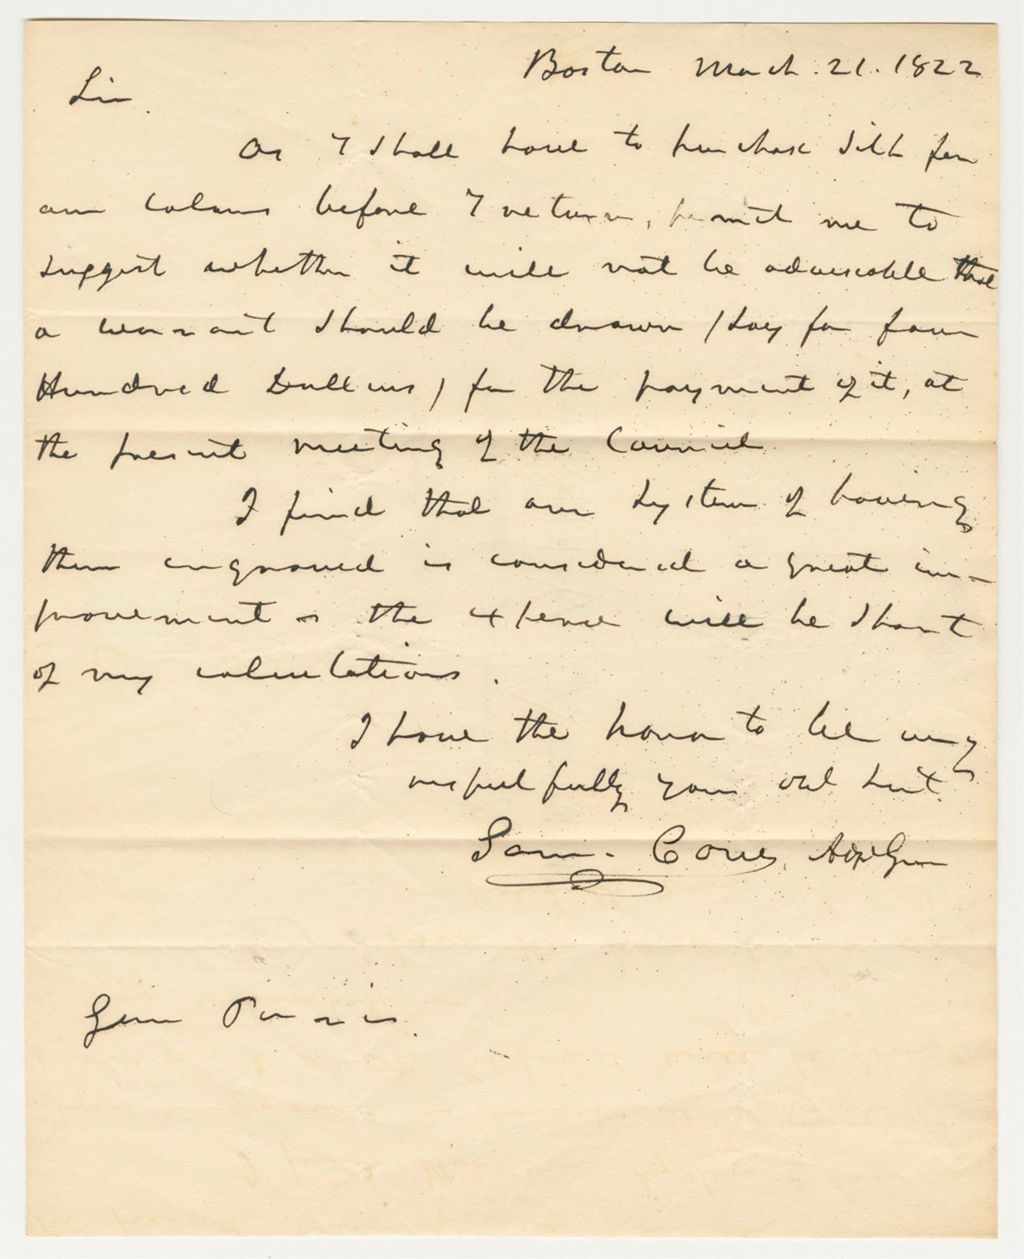 Boston March. 21. 1822
Sir.
As I shall have to purchase silk for
our colours before I return, permit me to
suggest whether it will not be adviseable that
a warrant should be drawn (say for four
Hundred Dollars) for the payment of it, at
the present meeting of the Council
I find that our system of having
them engraved is considered a great im-
provement & the expence will be short
of my calculations.
I have the honor to be very
respectfully your obt Sert.
Sam. Cony, Adj Gen
Gen